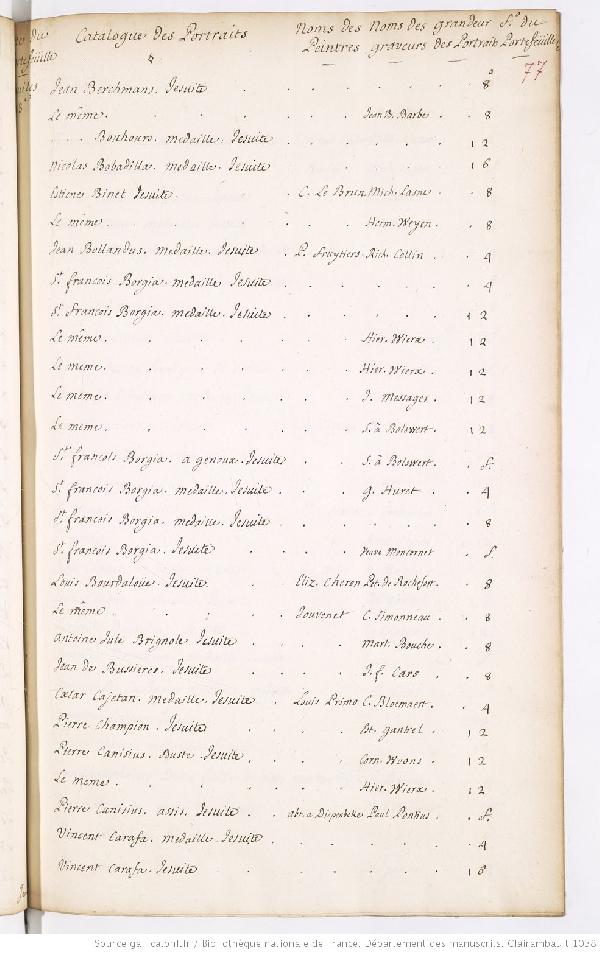 Catalogue des Portraits Noms des Peintres Noms des graveurs grandeur des Portraits F.º du Portefeuille
77
Jean Berchmans. Jesuite 8º
Le même. Jean B. Barbe. 8
Bouhours. medaille. Jesuite 12
Nicolas Bobadilla. medaille. Jesuite 16
Estiene Binet Jesuite. C. Le Brun Mich. Lasne. 8
Le même. Herm. Weyen. 8
Jean Bollandus. medaille. Jesuite. P. Fruytiers. Rich. Collin. 4
S.t françois Borgia. medaille. Jesuite. 4
S.t François Borgia. medaille. Jesuite. 12
Le même. Hier. Wierx. 12
Le meme. Hier. Wierx. 12
Le meme. J. Messager. 12
Le meme. S. à Bolswert. 12
S.t françois Borgia. a genoux. Jesuite. S. à Bolswert. f.
S.t françois Borgia. medaille. Jesuite. G. Huret. 4
S.t françois Borgia. medaille. Jesuite. 8
S.t françois Borgia. Jesuite. Veuve Moncornet. f.
Louis Bourdaloüe. Jesuite. Eliz. Cheron Pet. de Rochefort. 8
Le même. Jouvenet C. Simonneau. 8
Antoine Jule Brignole Jesuite. Mart. Bouche. 8
Jean de Bussieres. Jesuite. J. f. Cars. 8
Cæsar Cajetan. Medaille. Jesuite. Louis Primo C. Bloemaert. 4
Pierre Champion. Jesuite. Bt. Gantrel. 12
Pierre Canisius. Buste. Jesuite. Corn. Woons. 12
Le meme. Hier. Wierx. 12
Pierre Canisius. assis. Jesuite. abr. a Diepenbeke Paul Pontius. f.
Vincent Carafa. medaille. Jesuite. 4
Vincent Carafa. Jesuite. 16
Source gallica.bnf.fr / Bibliothèque nationale de France. Département des manuscrits. Clairambault 1038